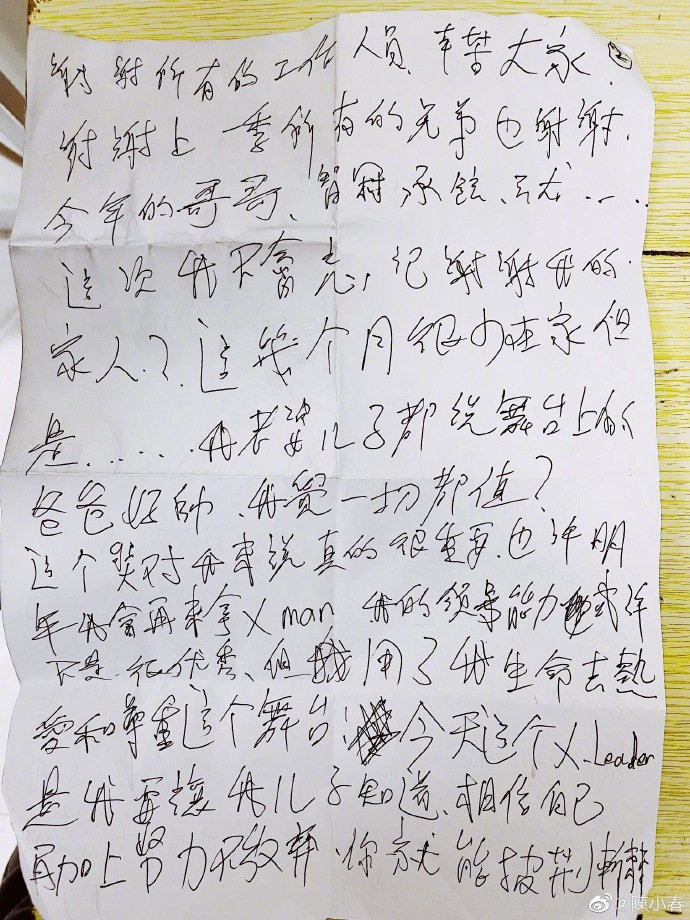 谢谢所有的工作人员, 辛苦大家. ②
谢谢上一季所有的兄弟也谢谢.
今年的哥哥、智霖、承铉、
这次我不会忘记谢谢我的
家人?.这几个月很少在家但
是.....我老婆儿子都说舞台上的
爸爸好帅.我觉一切都值?
这个奖对我来说真的很重要.也许明
年我会再来拿X man 我的领导能力或许
不是很优秀、但我用了我生命去熱
愛和尊重这个舞台 今天这个X-Leader
是我要讓我儿子知道、相信自己
加上努力不放弃.你就能披荆斬
@陳小春